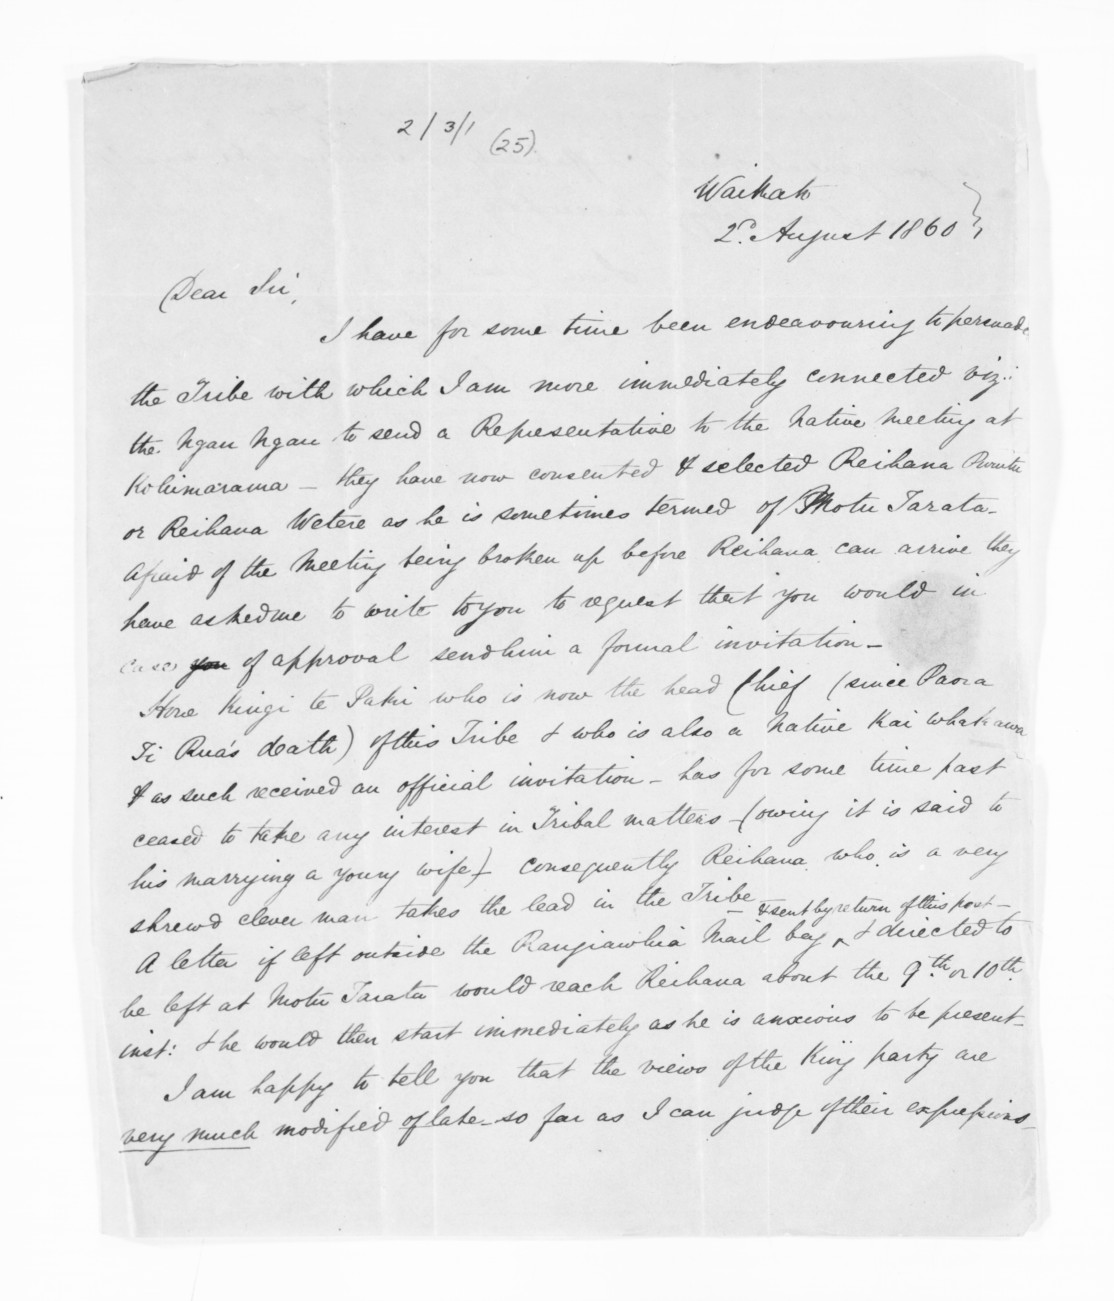 2/3/1 (25).
Waikato
2d. August 1860
Dear Sir,
I have for some time been endeavouring to persuade
the Tribe with which I am more immediately connected viz:
the Ngau Ngau to send a Representative to the Native Meeting at
Kohimarama – they have now consented & selected Reihana
or Reihana Wetere as he is sometimes termed of Motu Tarata –
Afraid of the Meeting being broken up before Reihana can arrive they
have asked me to write to you to request that you would in
case you of approval send him a formal invitation –
Hone Kingi te Paki who is now the head Chief (since Paora
Ti Rua's death) of this Tribe & who is also a Native Kai whakawa
& as such received an official invitation – has for some time past
ceased to take any interest in Tribal matters – (owing it is said to
his marrying a young wife) – consequently Reihana who is a very
shrewd clever man takes the lead in the Tribe –
& sent by return of this post –
A letter if left outside the Rangiawhia Mail bag ^ & directed to
be left at Motu Tarata would reach Reihana about the 9th. or 10th.
inst: & he would then start immediately as he is anxious to be present –
I am happy to tell you that the views of the King party are
very much modified of late – so far as I can judge of their expressions –